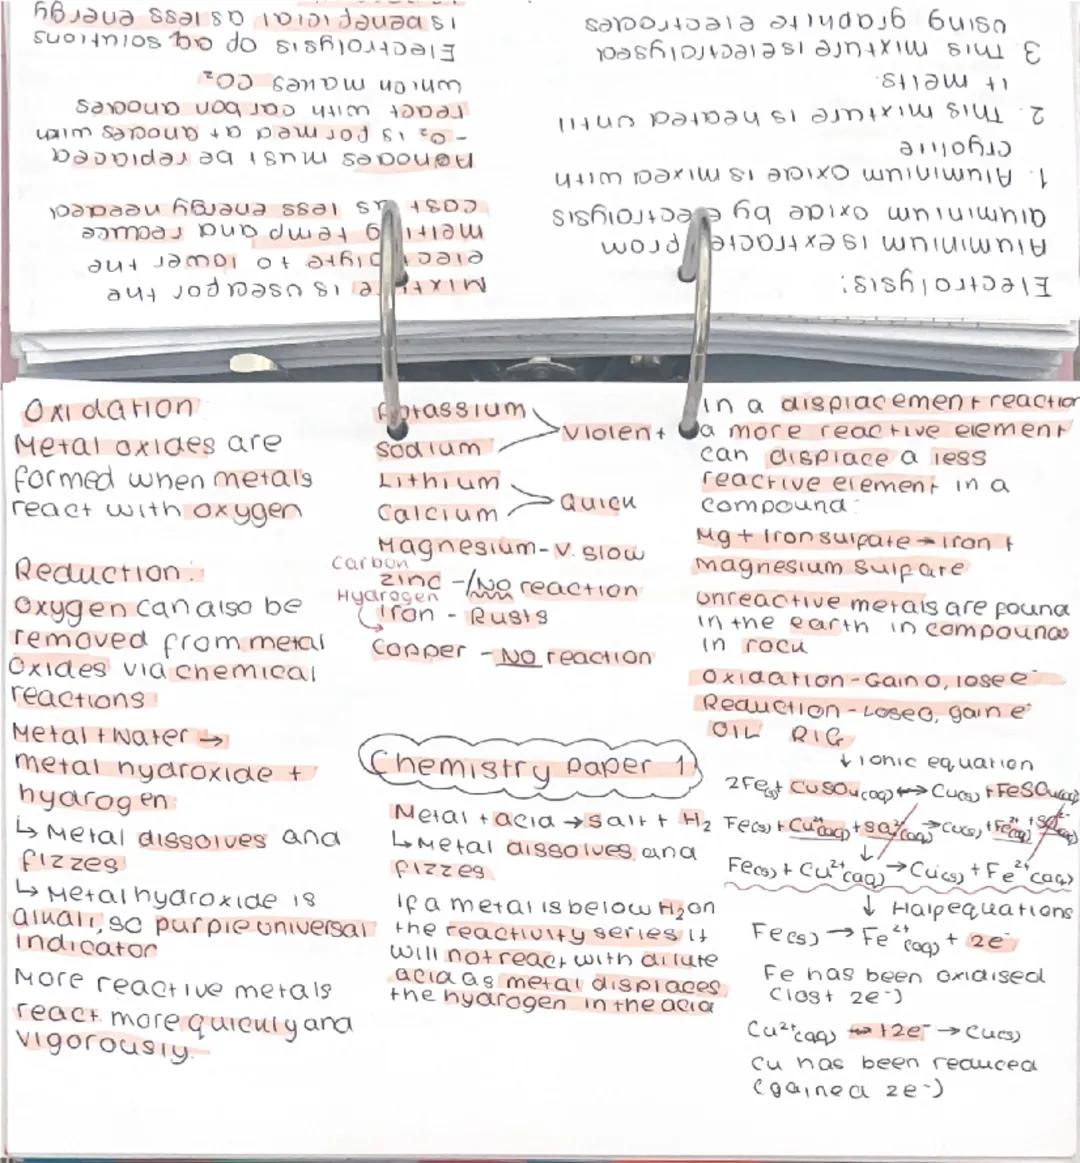 Electrolysis:
Aluminium is extracted from
aluminium oxide by electrolysis
1. Aluminium oxide is mixed with
cryolite
2. This mixture is heated until
it melts.
3. This mixture is electrolysed
using graphite electrodes
Mixture is used for the
electrolyte to lower the
melting temp and reduce
cost as less energy needed
Anodes must be replaced
- O₂ is formed at anodes which
react with carbon anodes
which makes CO²
Electrolysis of aq solutions
is beneficial as less energy
Oxidation:
Metal oxides are
formed when metals
react with oxygen
Reduction:
Oxygen can also be
removed from metal
oxides via chemical
reactions
Metal + Water →
metal hydroxide +
hydrogen:
↳ Metal dissolves and
fizzes
↳ Metal hydroxide is
alkali, so purple universal
indicator
More reactive metals
react more quickly and
vigorously.
Potassium
Sodium
Violent
Lithium
Calcium
Quick
Magnesium - V. slow
Carbon
Zinc - /No reaction
Hydrogen
Iron - Rusts
Copper - No reaction
Chemistry paper 1
Metal + acid → salt + H₂
↳ Metal dissolves and
fizzes
If a metal is below H₂ on
the reactivity series it
will not react with dilute
acid as metal displaces
the hydrogen in the acid
in a displacement reaction
a more reactive element
can displace a less
reactive element in a
compound:
Mg + Iron sulfate → iron +
magnesium sulfate
unreactive metals are found
in the earth in compounds
in rock
Oxidation - Gain O, lose e⁻
Reduction - Lose O, gain e⁻
OIL RIG
↓ ionic equation
2Fe(s) + CuSO₄(aq) → Cu(s) + FeSO₄(aq)
Fe(s) + Cu²⁺(aq) + SO₄²⁻(aq) → Cu(s) + Fe²⁺(aq) + SO₄²⁻(aq)
↓
Fe(s) + Cu²⁺(aq) → Cu(s) + Fe²⁺(aq)
↓ Half equations
Fe(s) → Fe²⁺(aq) + 2e⁻
Fe has been oxidised
(lost 2e⁻)
Cu²⁺(aq) + 2e⁻ → Cu(s)
Cu has been reduced
(gained 2e⁻)